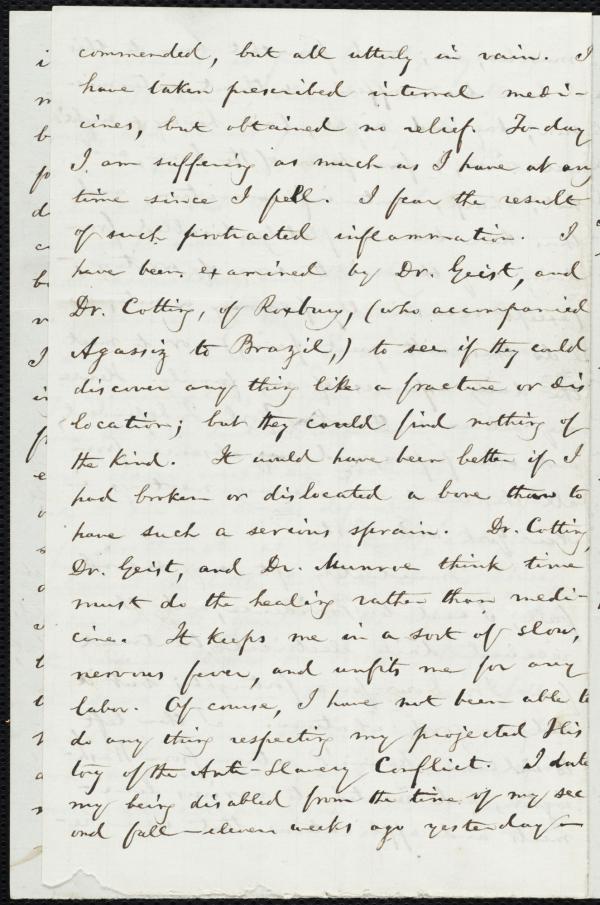 commended, but all utterly in vain. I
have taken prescribed internal medi-
cines, but obtained no relief. To-day
I am suffering as much as I have at any
time since I fell. I fear the result
of such protracted inflammation. I
have been examined by Dr. Geist, and
Dr. Cotting, of Roxbury, (who accompanied
Agassiz to Brazil,) to see if they could
discover any thing like a fracture or dis
location; but they could find nothing of
the kind. It would have been better if I
had broken or dislocated a bone than to
have such a serious sprain. Dr. Cotting,
Dr. Geist, and Dr. Munroe think time
must do the healing rather than medi-
cine. It keeps me in a sort of slow,
nervous fever, and unfits me for any
labor. Of course, I have not been able to
do any thing respecting my projected His
tory of the Anti-Slavery Conflict. I date
my being disabled from the time of my sec
ond fall—eleven weeks ago yesterday—